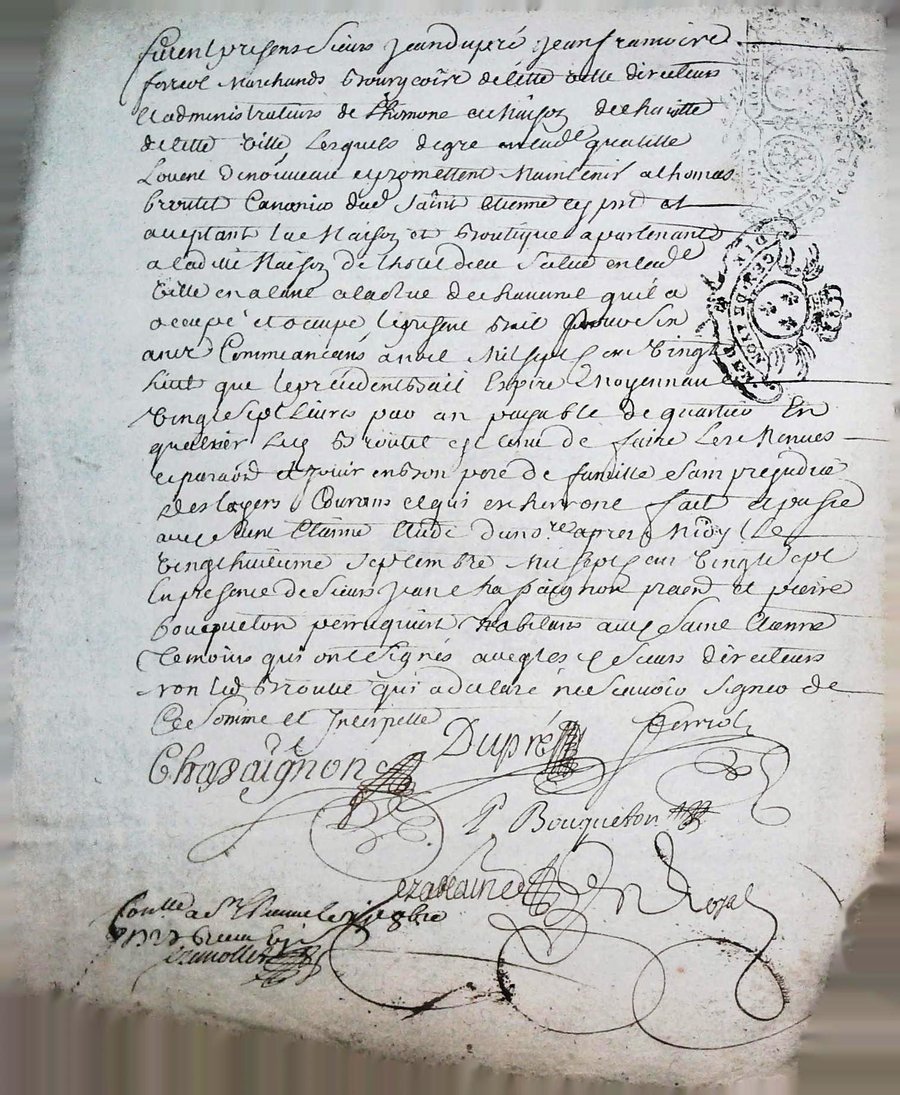 furent presens Sieurs Jean dupré Jean framoire
ferriol Marchands Bourgeois de cette ville directeurs
et administrateurs de l'homone et Maison de charitte
de cette ville Lesquels de gre en lad. qualitte
Louent denouveau et promettent Maintenir a thomas
broutet Canonier dud Saint etienne cy pnt et
aceptant La Maison et Boutique apartenante
a lad Maison de lhotel dieu Scitue en lad
ville en a la Rue de chavanel quil a
ocupé et ocupe le present Bail pour un
anez Commancans a Noel Mil sept cen vingt
huit que le precedent Bail Expire Moyennant
vingt sept Livres par an payable de quartier En
quartier Led Broutet est tenu de faire Les Menues
reparaons et Jouir en bon pere de famille sans prejudice
des loyers Courans et qui en herront fait et passe
aud Saint Etienne Etude du nre apres Midy Le
vingt huitieme Septembre Mil sept cen vingt sept
En presence de Sieurs Jean Chasaignon praen et pierre
Bouqueton perruquier habitans aud Saint Etienne
temoins qui ont Signés avec les Sieurs directeurs
non led Broutet qui a declaré ne Scavoir Signer de
Ce Somme et Interpelle
Chasaignon Dupré ferriol
P Bouqueton
Royal
Con.lle a St Etienne le 8bre
1727